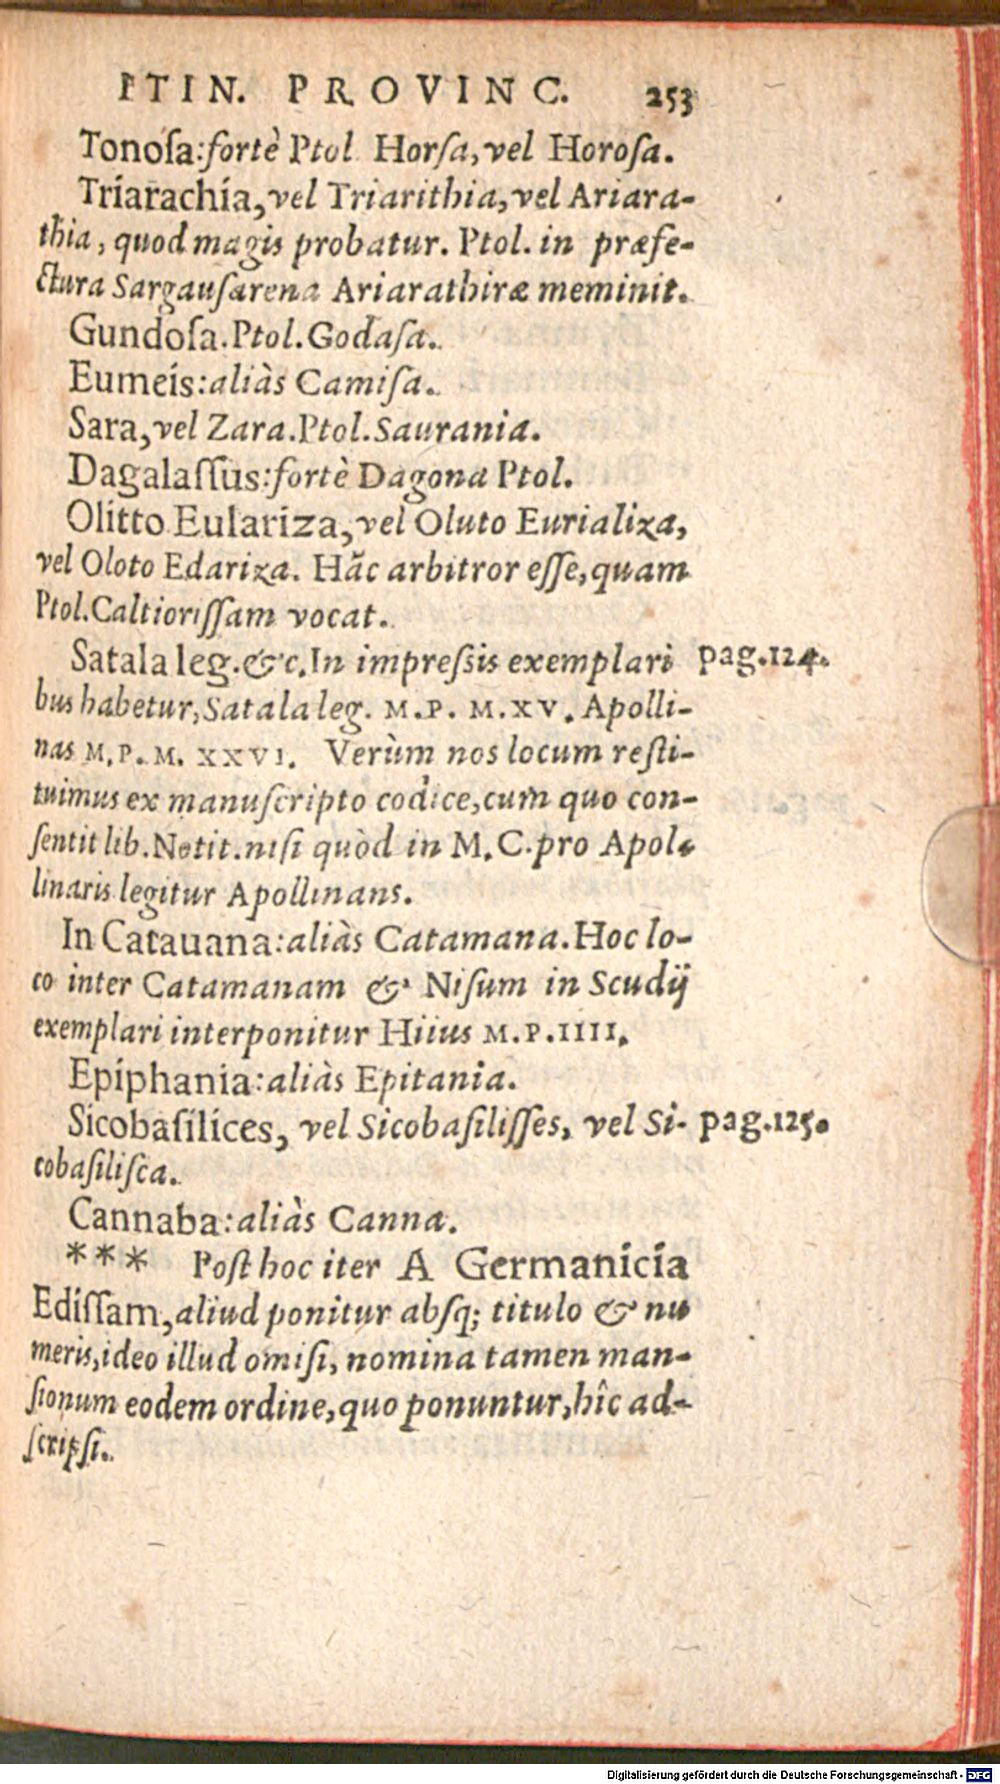 ITIN. PROVINC. 253
Tonosa:fortè Ptol Horsa,vel Horosa.
Triarachia,vel Triarithia,vel Ariara-
thia, quod magis probatur. Ptol. in præfe-
ctura Sargausarena Ariarathiræ meminit.
Gundosa.Ptol.Godasa.
Eumeis:aliàs Camisa.
Sara,vel Zara.Ptol.Saurania.
Dagalassus:fortè Dagona Ptol.
Olitto Eulariza,vel Oluto Eurializa,
vel Oloto Edariza. Hãc arbitror esse,quam
Ptol.Caltiorissam vocat.
Satala leg.&c.In impressis exemplari pag.124.
bus habetur,Satala leg. M.P. M.XV. Apolli-
nas M.P.M. XXVI. Verùm nos locum resti-
tuimus ex manuscripto codice,cum quo con-
sentit lib.Notit.nisi quòd in M.C.pro Apol-
linaris legitur Apollinans.
In Catauana:aliàs Catamana.Hoc lo-
co inter Catamanam & Nisum in Scudij
exemplari interponitur Hiius M.P.IIII.
Epiphania:aliàs Epitania.
Sicobasilices, vel Sicobasilisses, vel Si- pag.125.
cobasilisca.
Cannaba:aliàs Canna.
*** Post hoc iter A Germanicia
Edissam,aliud ponitur absq; titulo & nu
meris,ideo illud omisi, nomina tamen man-
sionum eodem ordine,quo ponuntur,hîc ad-
scripsi.
Digitalisierung gefördert durch die Deutsche Forschungsgemeinschaft - DFG